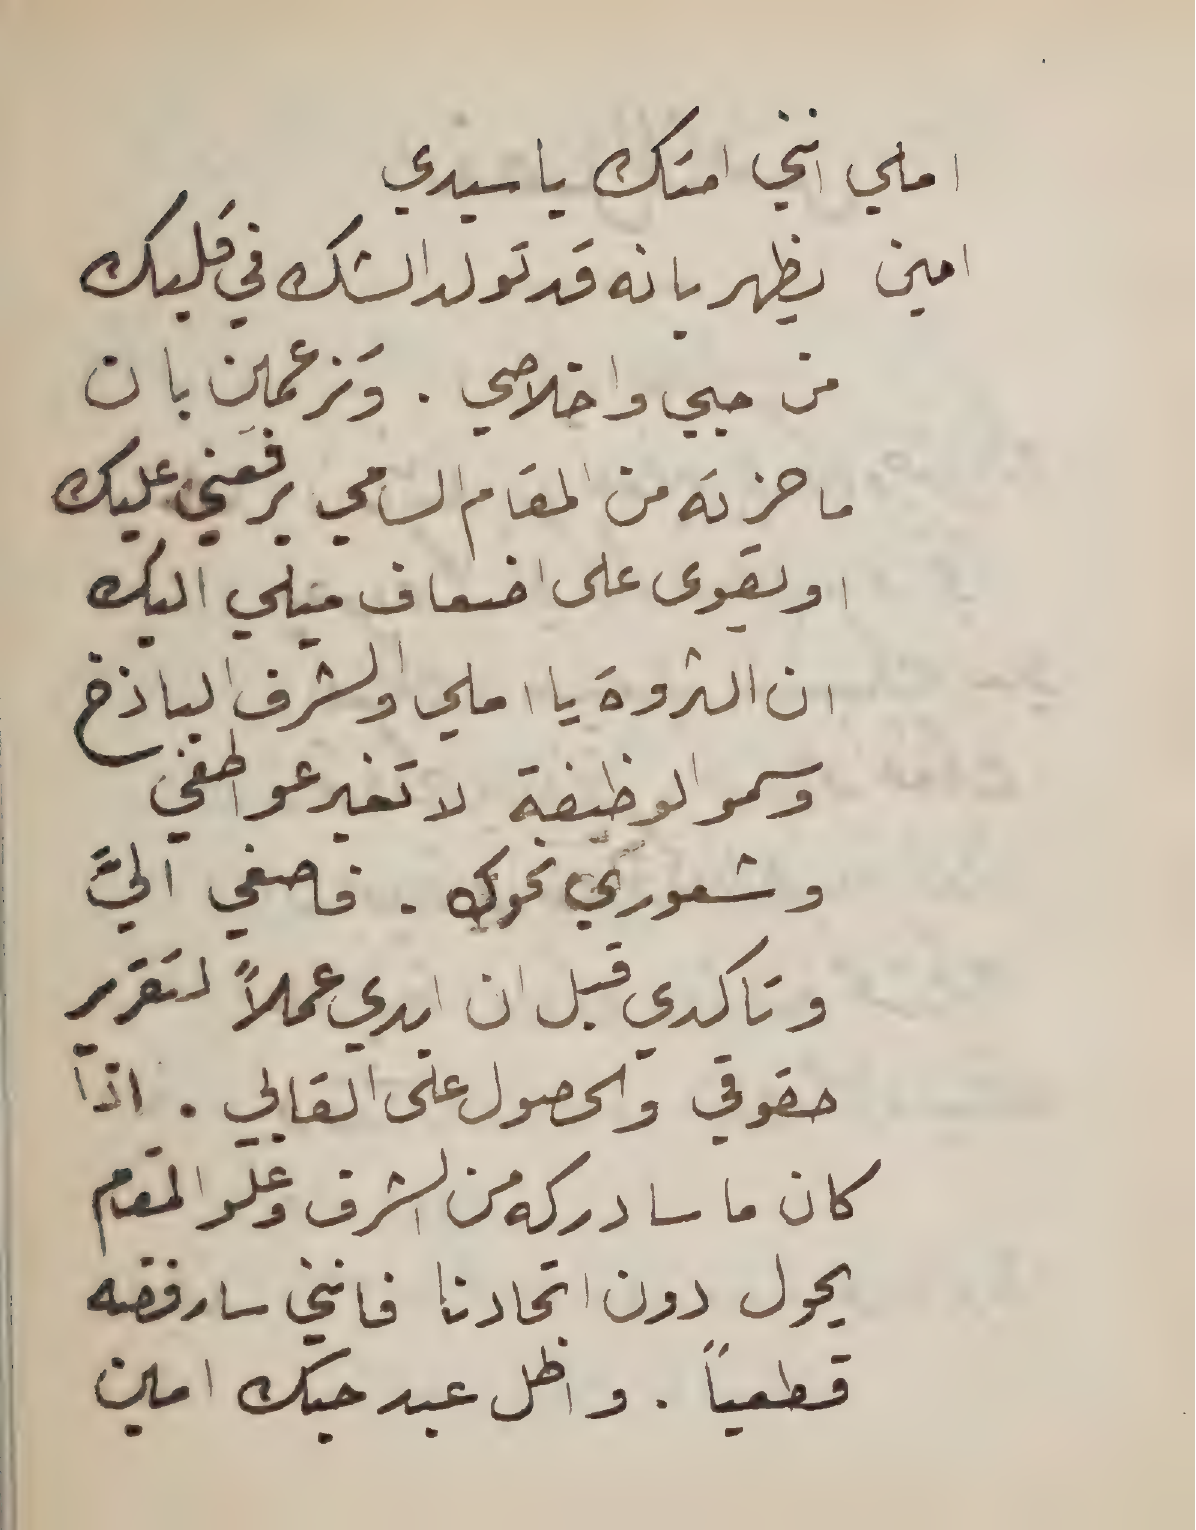 املي انني امتك يا سيدي
امين يظهر بانه قد تولد الشك في قلبك
من حبي واخلاصي . وتزعمين بان
ما حزته من المقام السامي يرفعني عليك
او يقوى على اضعاف ميلي اليك
ان الثروة يا املي والشرف الباذخ
وسمو الوظيفة لا تغير عواطفي
وشعوري نحوك . فاصغي اليَّ
وتاكدي قبل ان ابدي عملاً لتقرير
حقوقي والحصول على القابي . اذا
كان ما سادركه من الشرف وعلو المقام
يحول دون اتحادنا فانني سارفضه
قطعياً . واظل عبد حبك امين